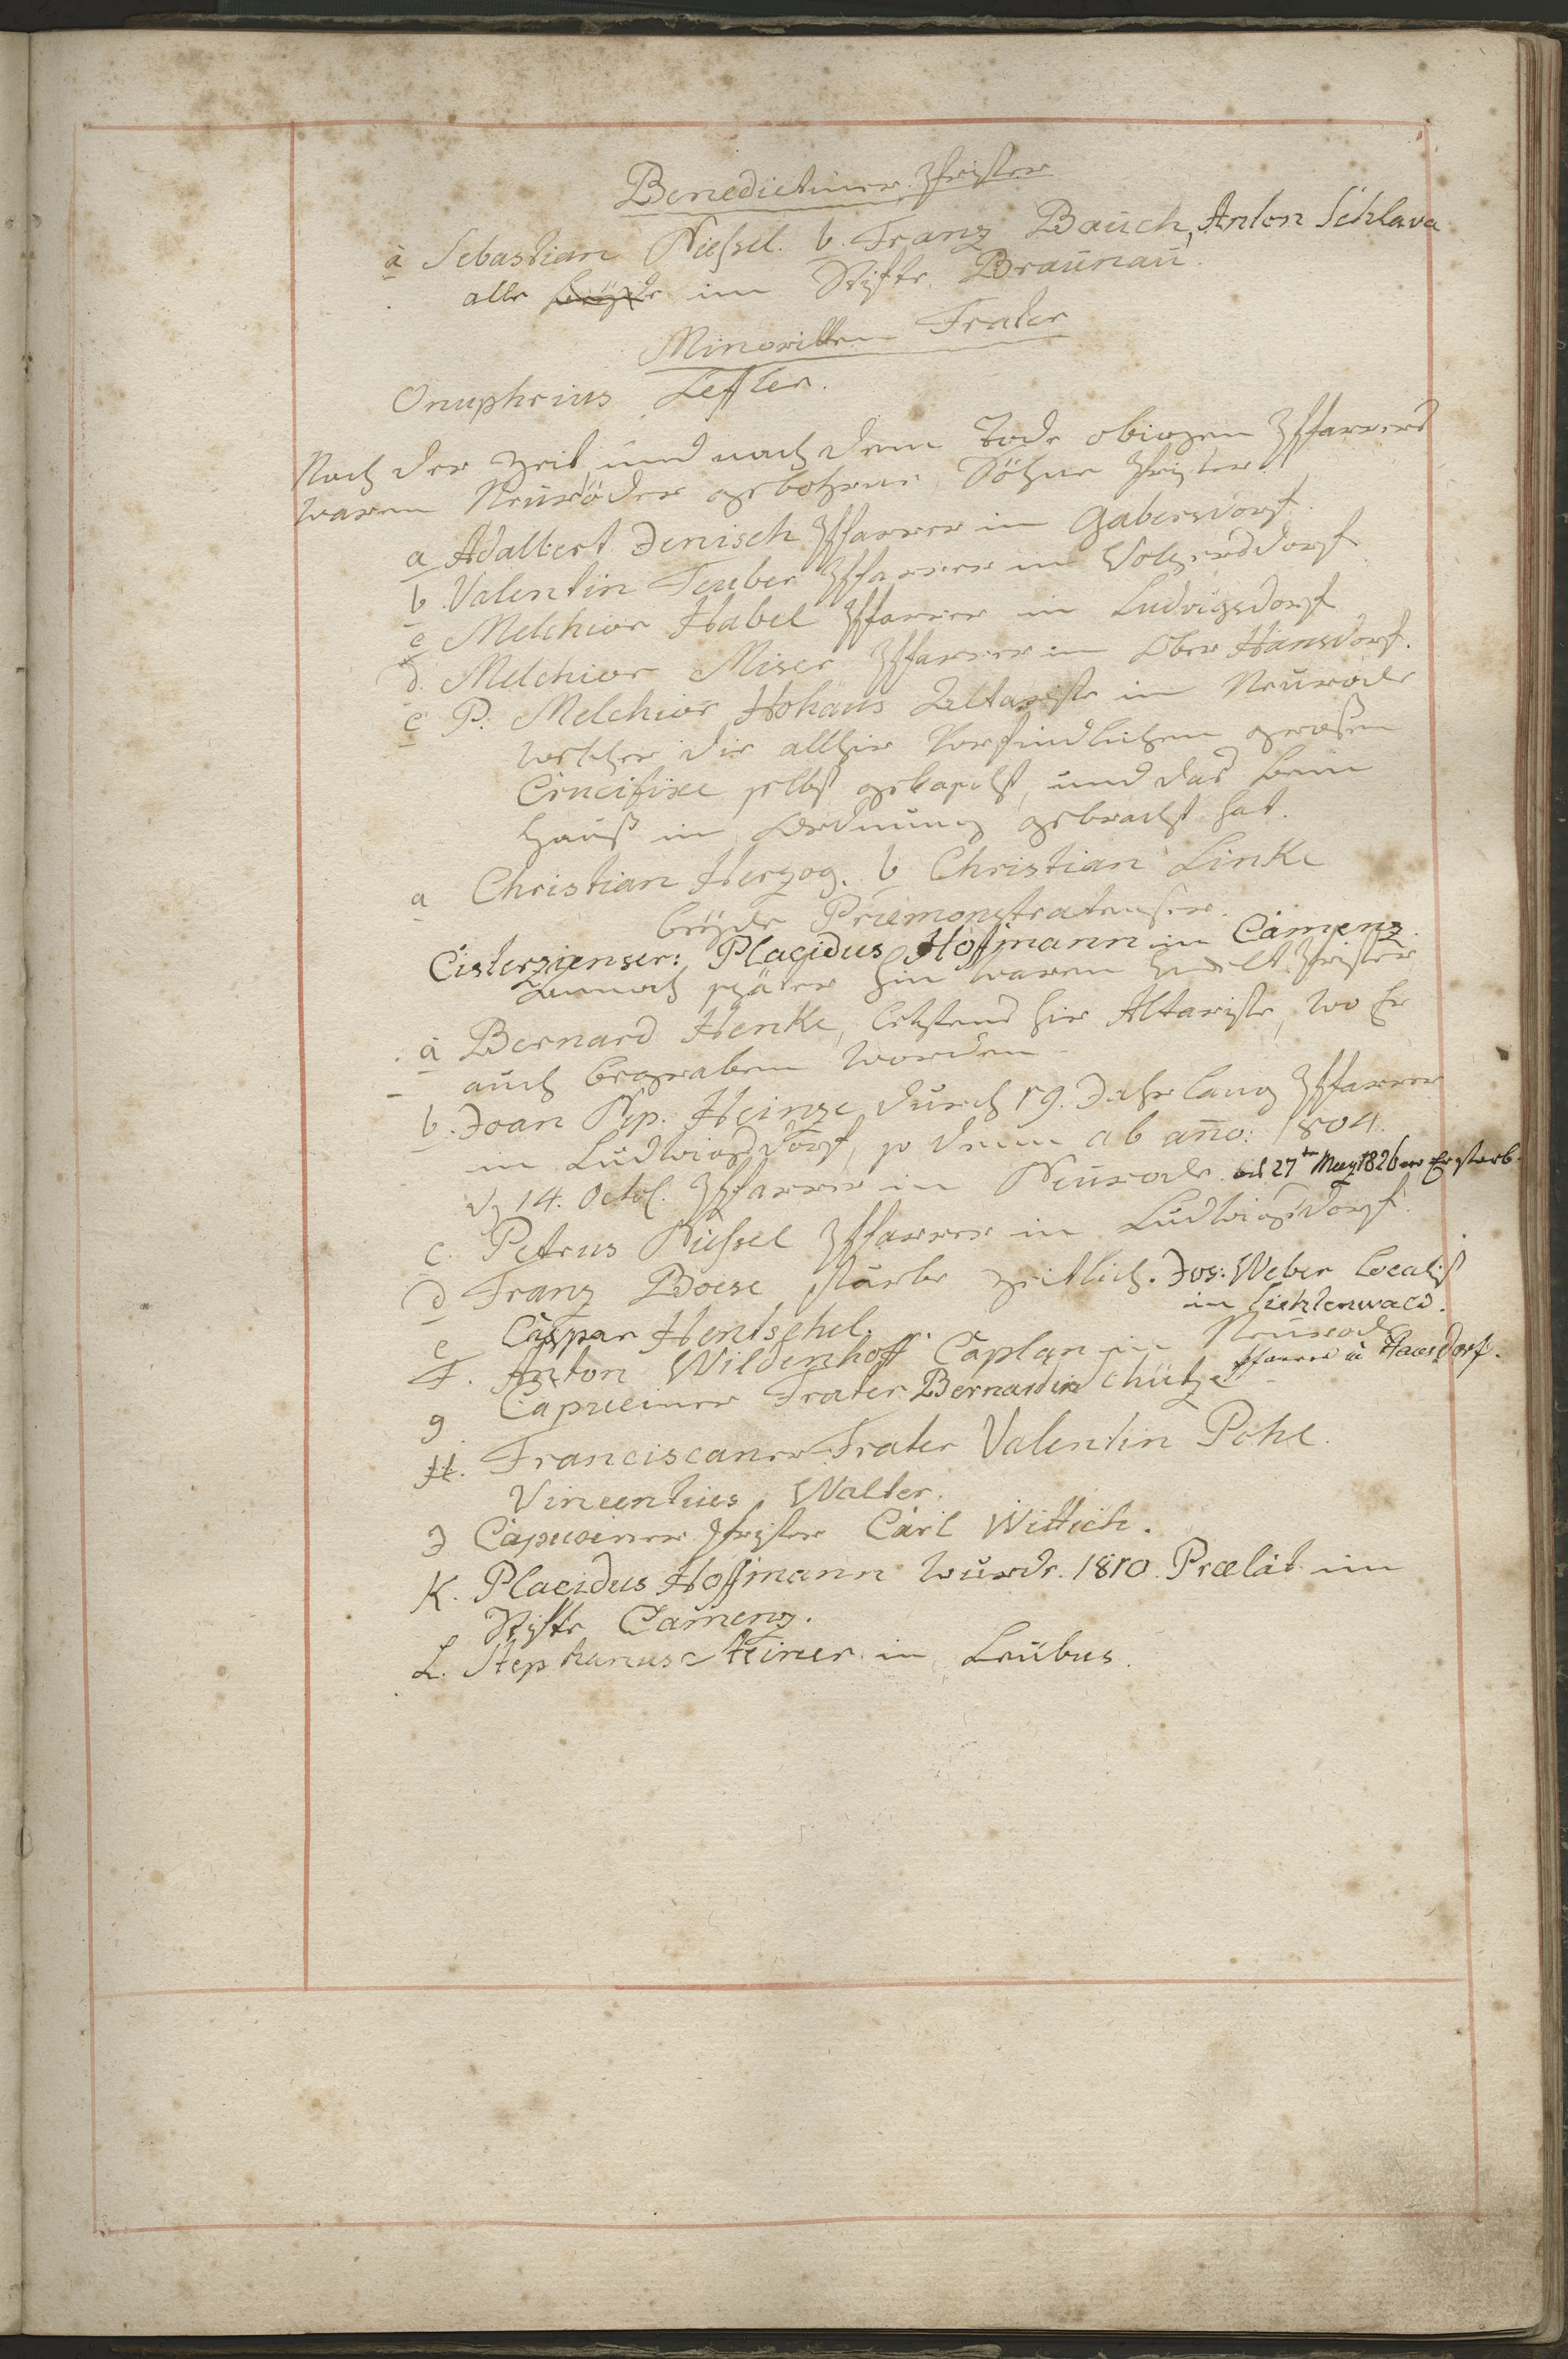 Benedictiner Prister
a Sebastian Nießel. b. Franz Bauch, Anton Schlava
alle beÿde im Stifte Braunau.
Minoritten Frater
Onuphrius Leffler.
Nach der Zeit und nach dem Tode obigen Pfarrers
waren Neuröder gebohrne Söhne Prister
a Adalbert Jenisch Pfarrer in Gabersdorf.
b. Valentin Teuber Pfarrer in Volpersdorf
c Melchior Habel Pfarrer in Ludvigsdorf
d. Melchior Miser Pfarrer in Ober Hansdorf.
e P. Melchior Hohaus Altariste in Neurode
welcher die allhir Vorfindlichen großen
Crucifixe selbst und das Bein
Hauß in Ordnung gebracht hat.
a Christian Herzog. b Christian Linke
beÿde Præmonstratenser.
Cisterzienser: Placidus Hoffmann in Camenz.
später hin waren Prister
a Bernard Henke, letztens hir Altariste, wo Er
auch begraben worden
b. Joan Nep. Heinze durch 19. Jahr lang Pfarrer
in Ludwigsdorf, so denn ab año: 1804.
d 14. Octob. Pfarrer in Neurode. bis 27ten May 1826 wo Er starb.
c. Petrus Nießel Pfarrer in Ludwigsdorf.
d Franz Boese starbe zeitlich. Jos: Weber Localist
in Lichtenwald.
e Caspar Hentschel.
F. Anton Wildenhoff Caplan in Neurode
Pfarrer in Hausdorf.
g Capuciner Frater Bernardin Schütze
H. Franciscaner Frater Valentin Pohl.
Vincentius Walter.
J Capuciner Prister Carl Wittich.
K. Placidus Hoffmann wurde. 1810. Prælat im
Stifte Camenz.
L. Stephanus Steiner in Leubus.